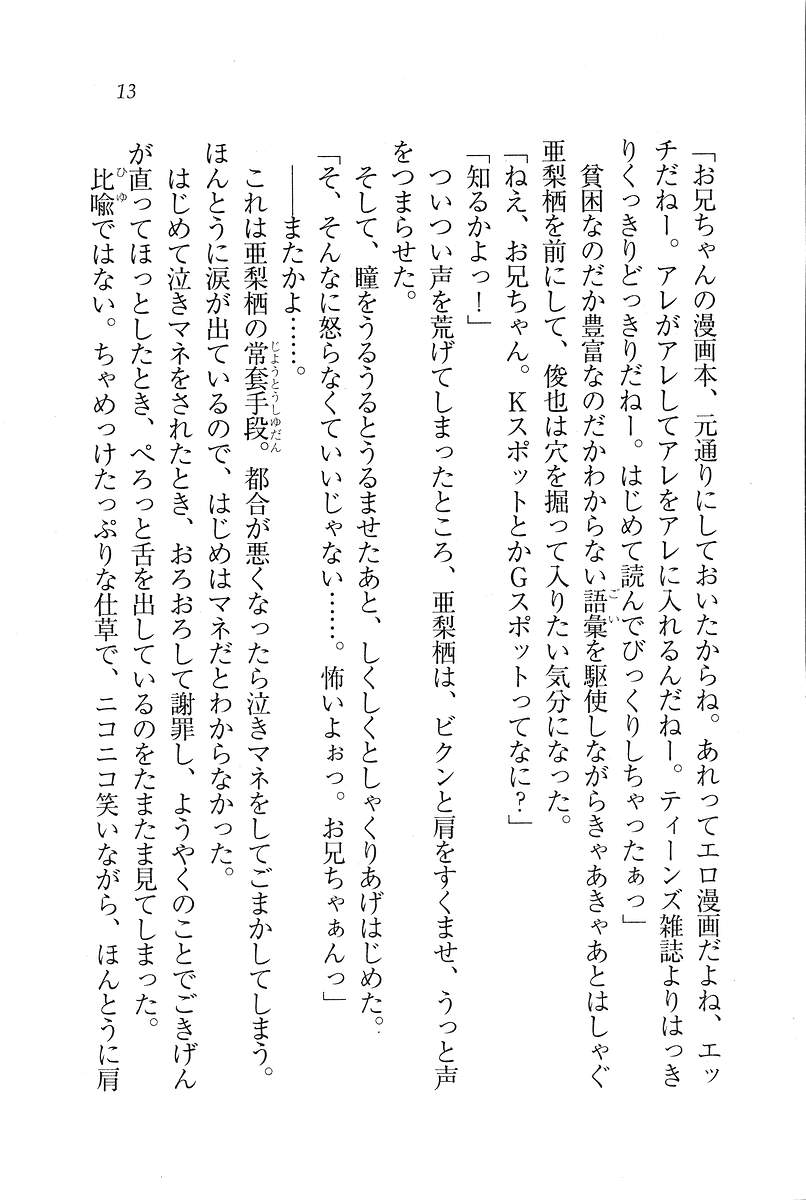 13
「お兄ちゃんの漫画本、元通りにしておいたからね。あれってエロ漫画だよね、エッ
チだねー。アレがアレしてアレをアレに入れるんだねー。ティーンズ雑誌よりはっき
りくっきりどっきりだねー。はじめて読んでびっくりしちゃったぁっ」
貧困なのだか豊富なのだかわからない語彙を駆使しながらきゃあきゃあとはしゃぐ
亜梨栖を前にして、俊也は穴を掘って入りたい気分になった。
「ねえ、お兄ちゃん。KスポットとかGスポットってなに？」
「知るかよっ！」
ついつい声を荒げてしまったところ、亜梨栖は、ビクンと肩をすくませ、うっと声
をつまらせた。
そして、瞳をうるうるとうるませたあと、しくしくとしゃくりあげはじめた。
「そ、そんなに怒らなくていいじゃない……。怖いよぉっ。お兄ちゃぁんっ」
――またかよ……。
これは亜梨栖の常套手段。都合が悪くなったら泣きマネをしてごまかしてしまう。
ほんとうに涙が出ているので、はじめはマネだとわからなかった。
はじめて泣きマネをされたとき、おろおろして謝罪し、ようやくのことでごきげん
が直ってほっとしたとき、ぺろっと舌を出しているのをたまたま見てしまった。
比喩ではない。ちゃめっけたっぷりな仕草で、ニコニコ笑いながら、ほんとうに肩